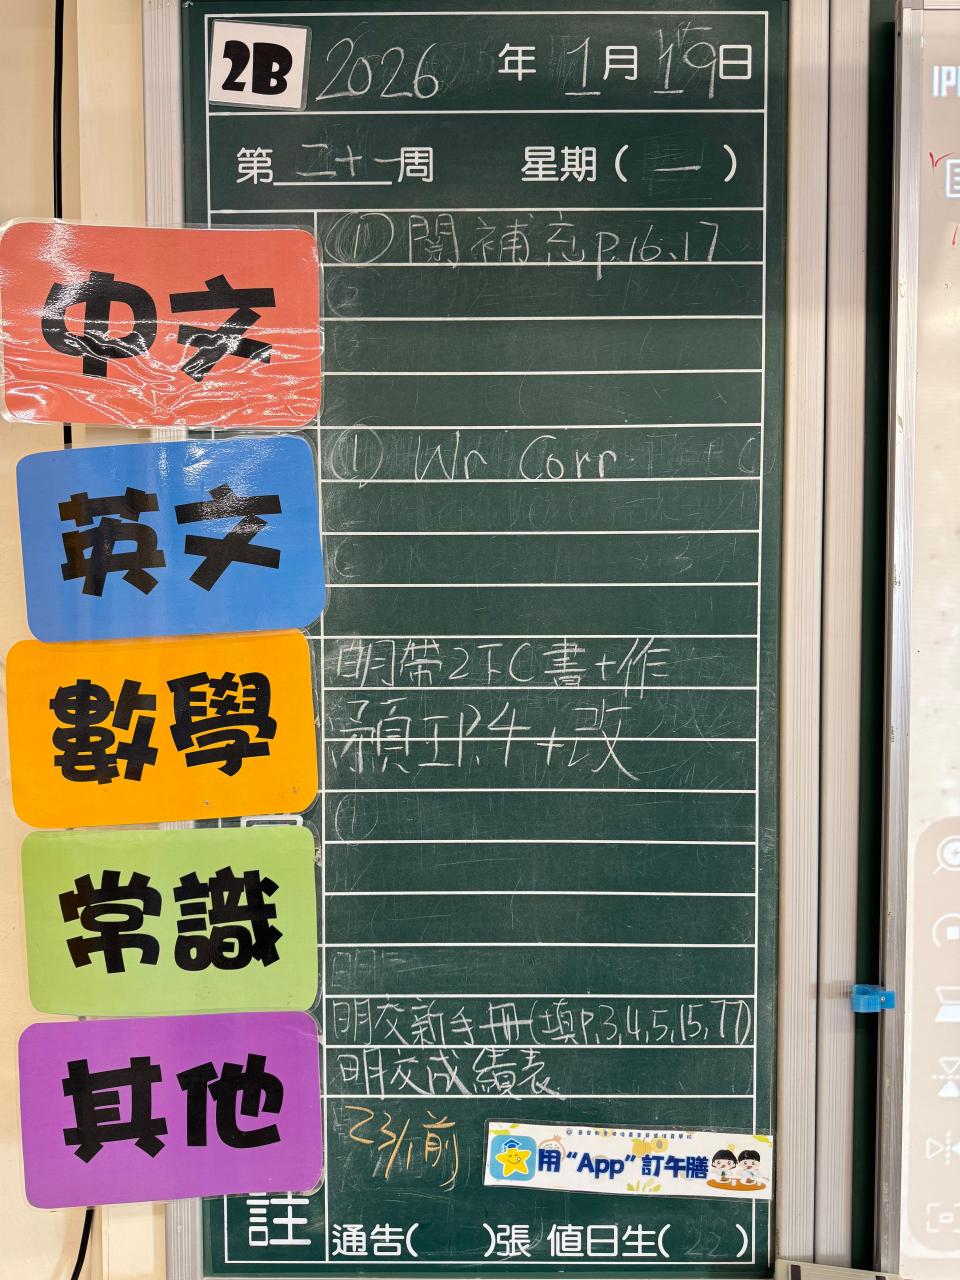 2B 2026年1月19日
第二十一周 星期(一)
中文
① 閱補充P.16.17
英文
① Wr Corr
數學
明帶2下C書+作
P.4+改
常識
其他
明交新手冊(填P.3,4,5,15,77)
明交成績表
23/1前
用“App”訂午膳
註
通告( )張 值日生(22)